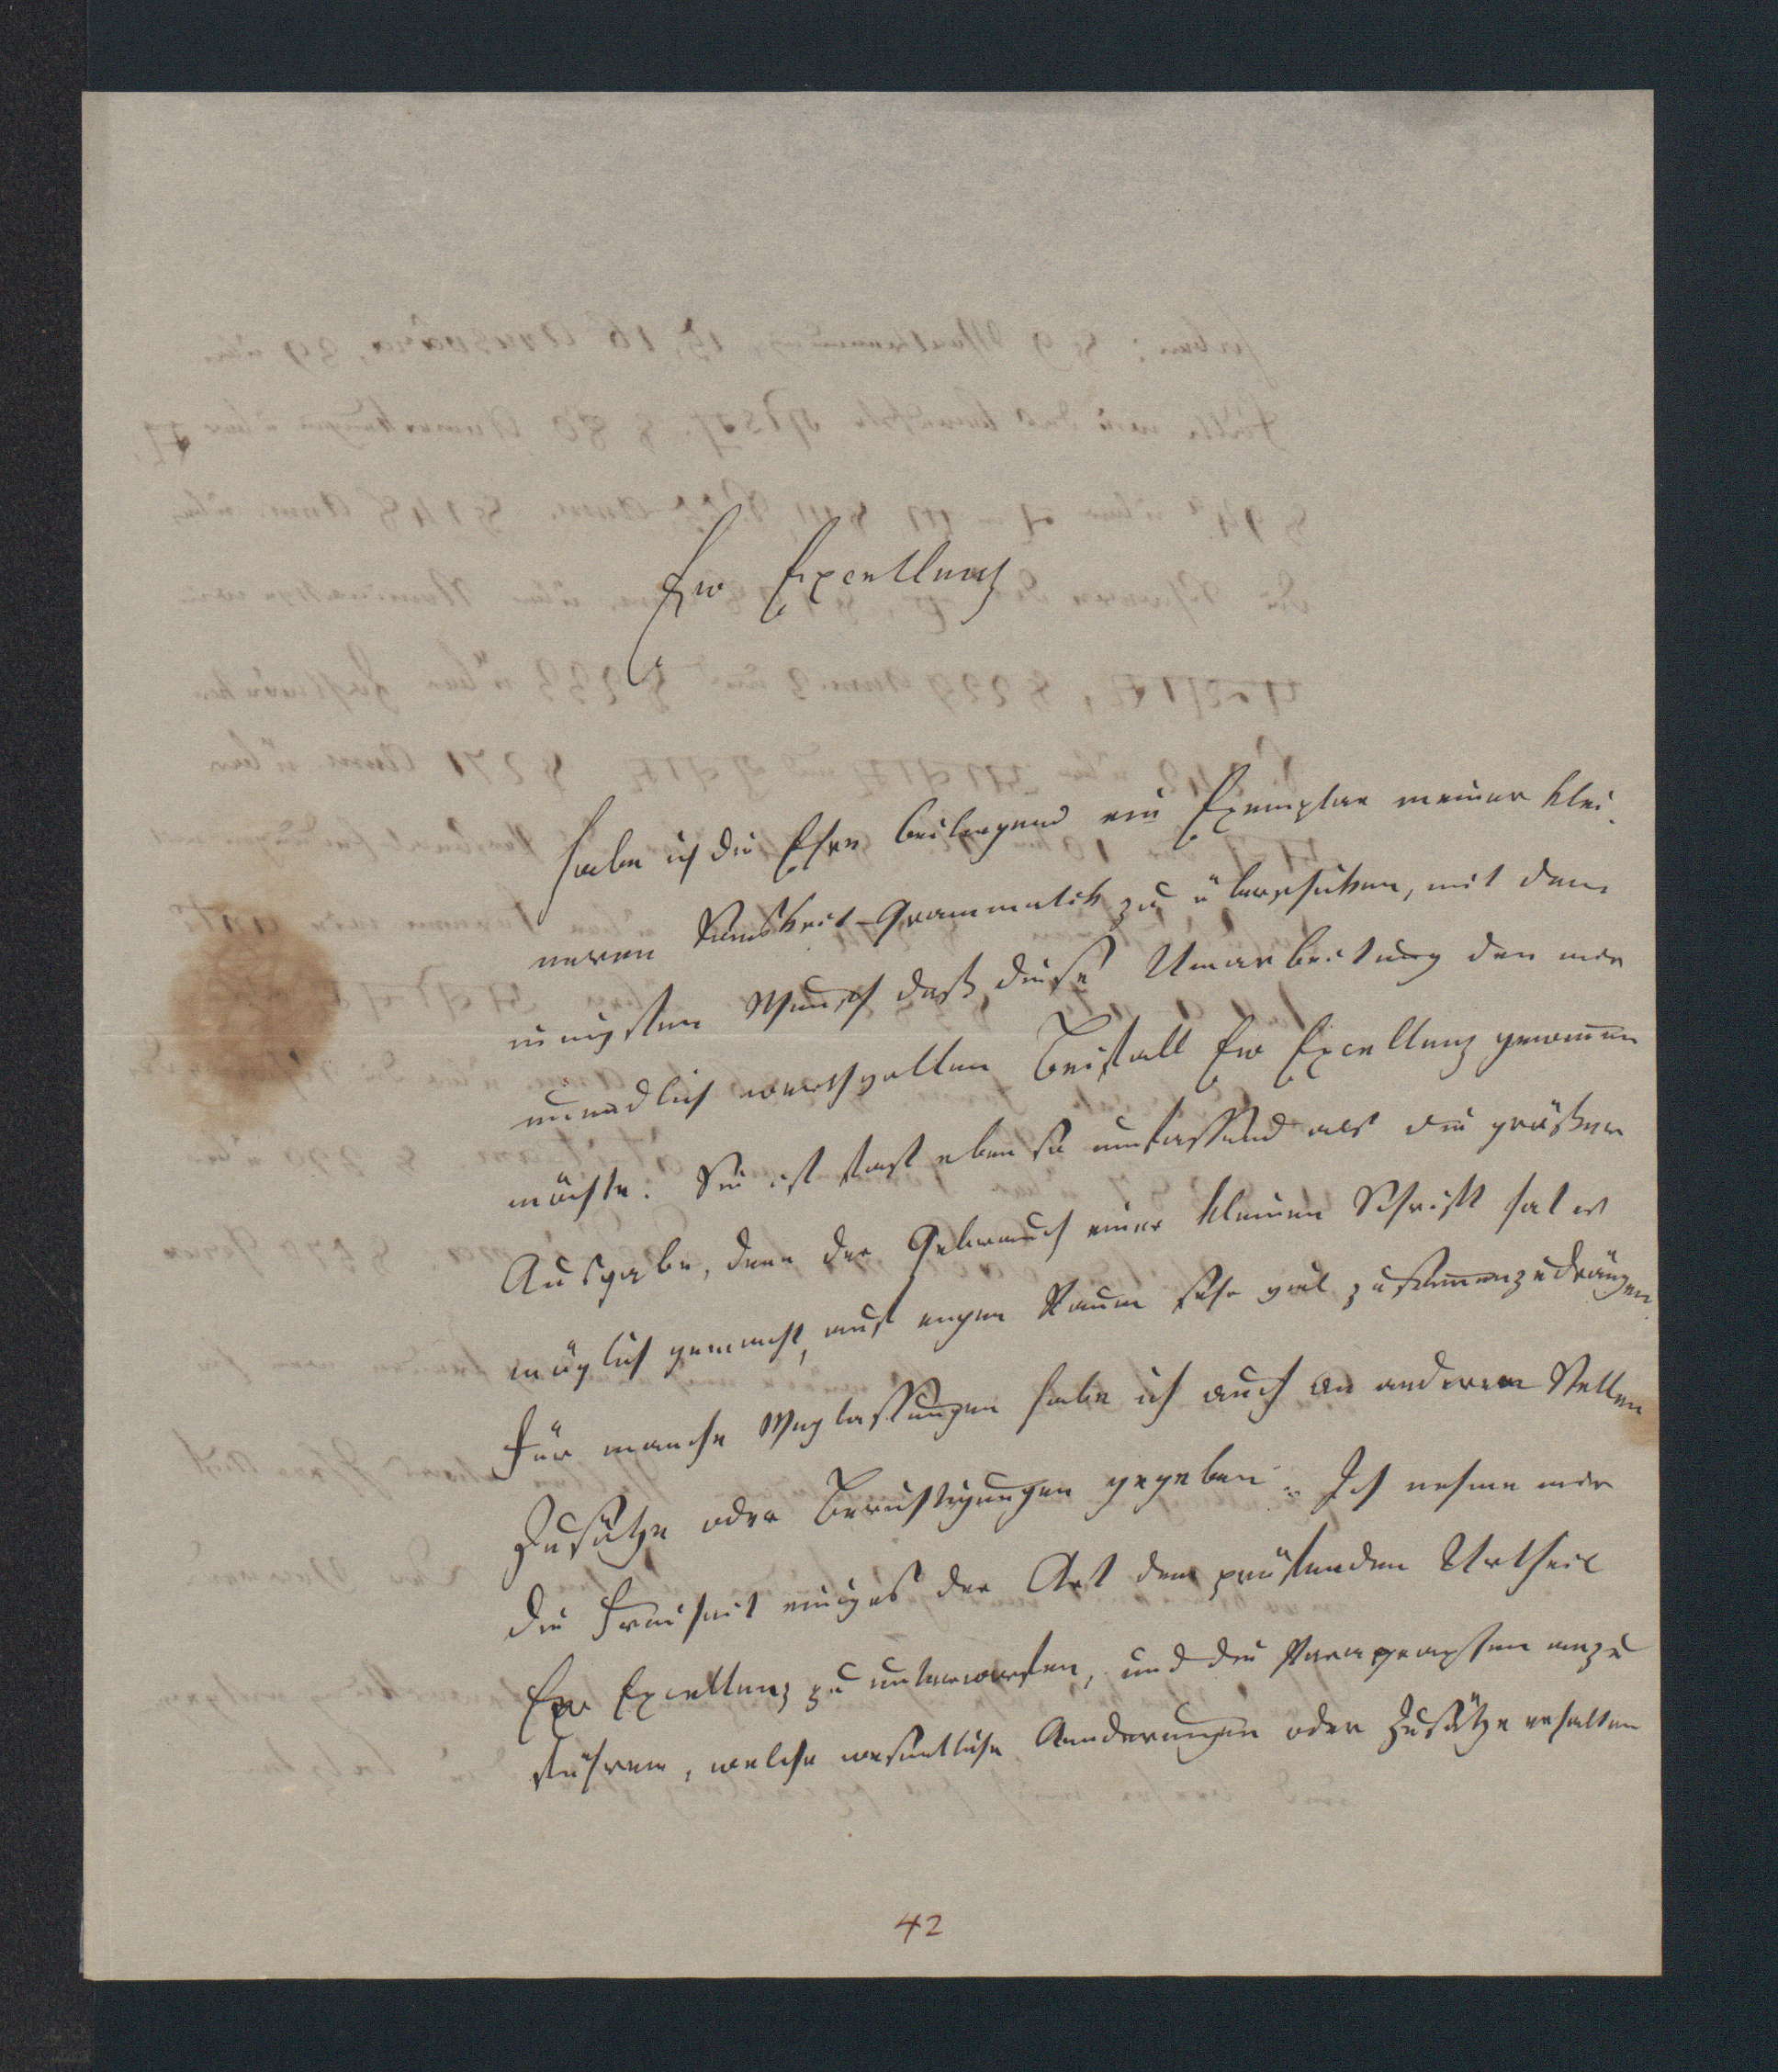 Ew Excellenz
habe ich die Ehre beiliegend ein Exemplar meiner klei-
neren Sanskrit-Grammatik zu überschicken, mit dem
innigsten Wunsch daß diese Umarbeitung den mir
unendlich werthvollen Beifall Ew Excellenz gewinnen
möchte. Sie ist fast eben so umfassend als die größere
Ausgabe, denn der Gebrauch einer kleinen Schrift hat es
möglich gemacht, auf engen Raum sehr viel zusammenzudrängen
Für manche Weglassungen habe ich auch an anderen Stellen
Zusätze oder Berichtigungen gegeben. Ich nehme mir
die Freiheit einiges der Art dem prüfenden Urtheil
Ew Excellenz zu unterwerfen, und die Paragraphen anzu
führen, welche wesentliche Aenderungen oder Zusätze erhalten
42